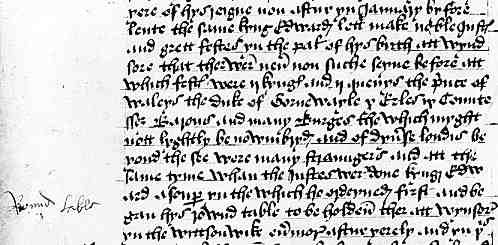 yere of hys reigne non aftur yn Januarij before
lente the same kyng Edward lett make noble Justes
and grett festes yn the palys of hys birth att wynd
sore that ther wer neuer non suche seyne before att
which feste were ij kynges and ij quenys the prince of
waleys the duke of Cornewayle x Erles ix Comte
sses Barons and many Burges the which myght
nott lyghtly be nowmbryd and of dyuerse londis be
yond the see were many straungers and att the
same tyme whan the Justes wer done kyng Edw
ard a soper yn the which he ordeyned first and be
gan hys rownd table to be holden ther att wynsore
yn the wittson wik euermor aftur yerely and yn ye
Round table